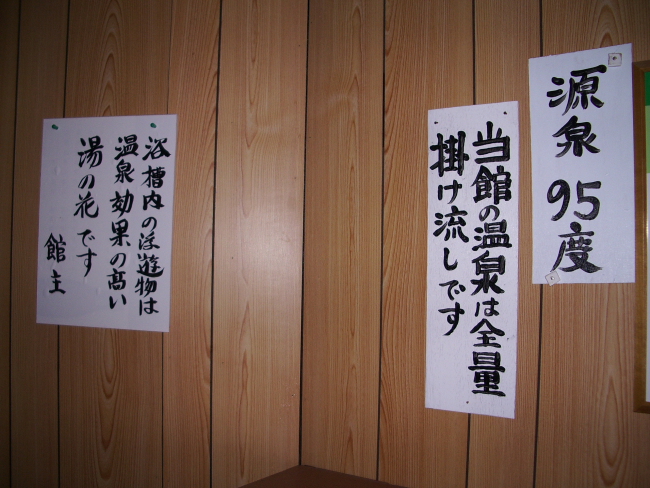 源泉 95度
当館の温泉は全量
掛け流しです
浴槽内の浮遊物は
温泉効果の高い
湯の花です
館主